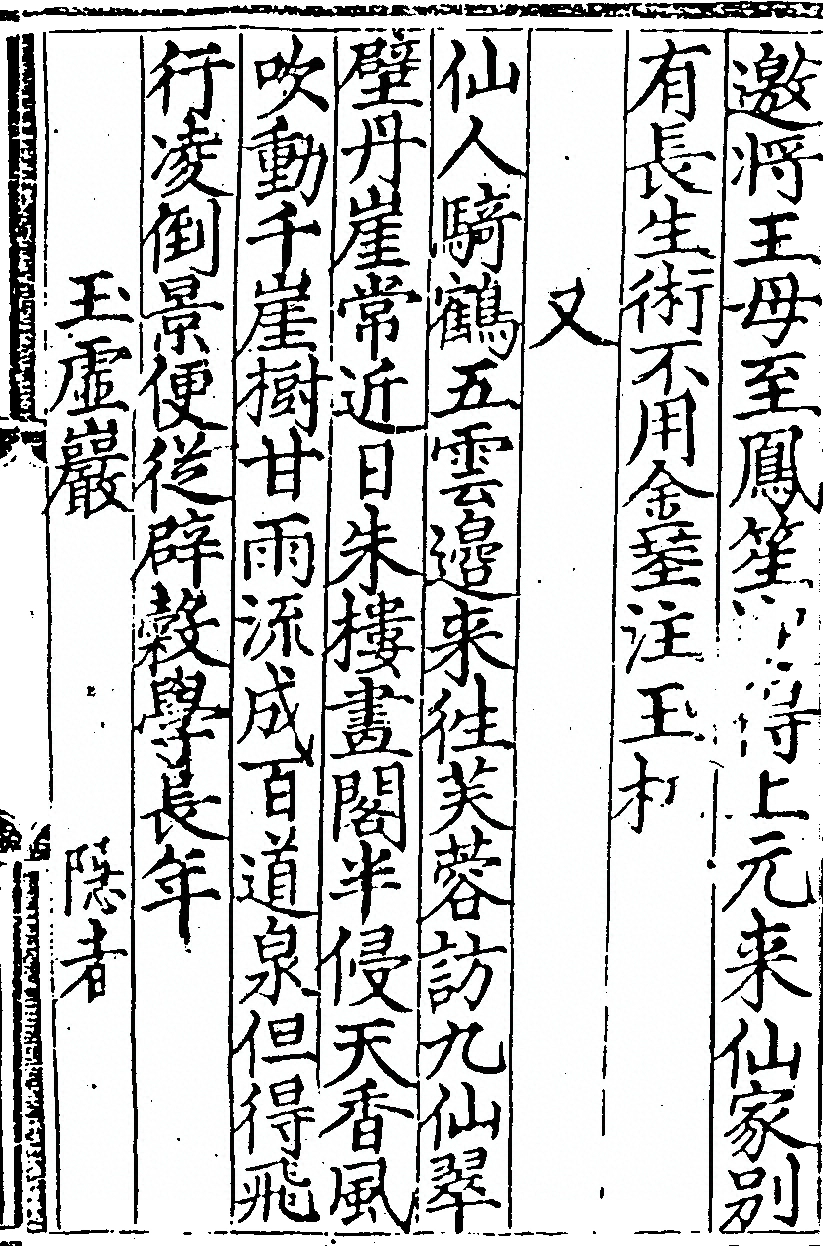 邀将王母至鳳笙得上元来仙家别
有長生術不用金莖注玉杯
又
仙人騎鶴五雲邉来徃芙蓉訪九仙翠
壁丹崖常近日朱樓畫閣半侵天香風
吹動千崖樹甘雨流成百道泉但得飛
行凌倒景便從辟穀學長年
玉虚巖　隱者